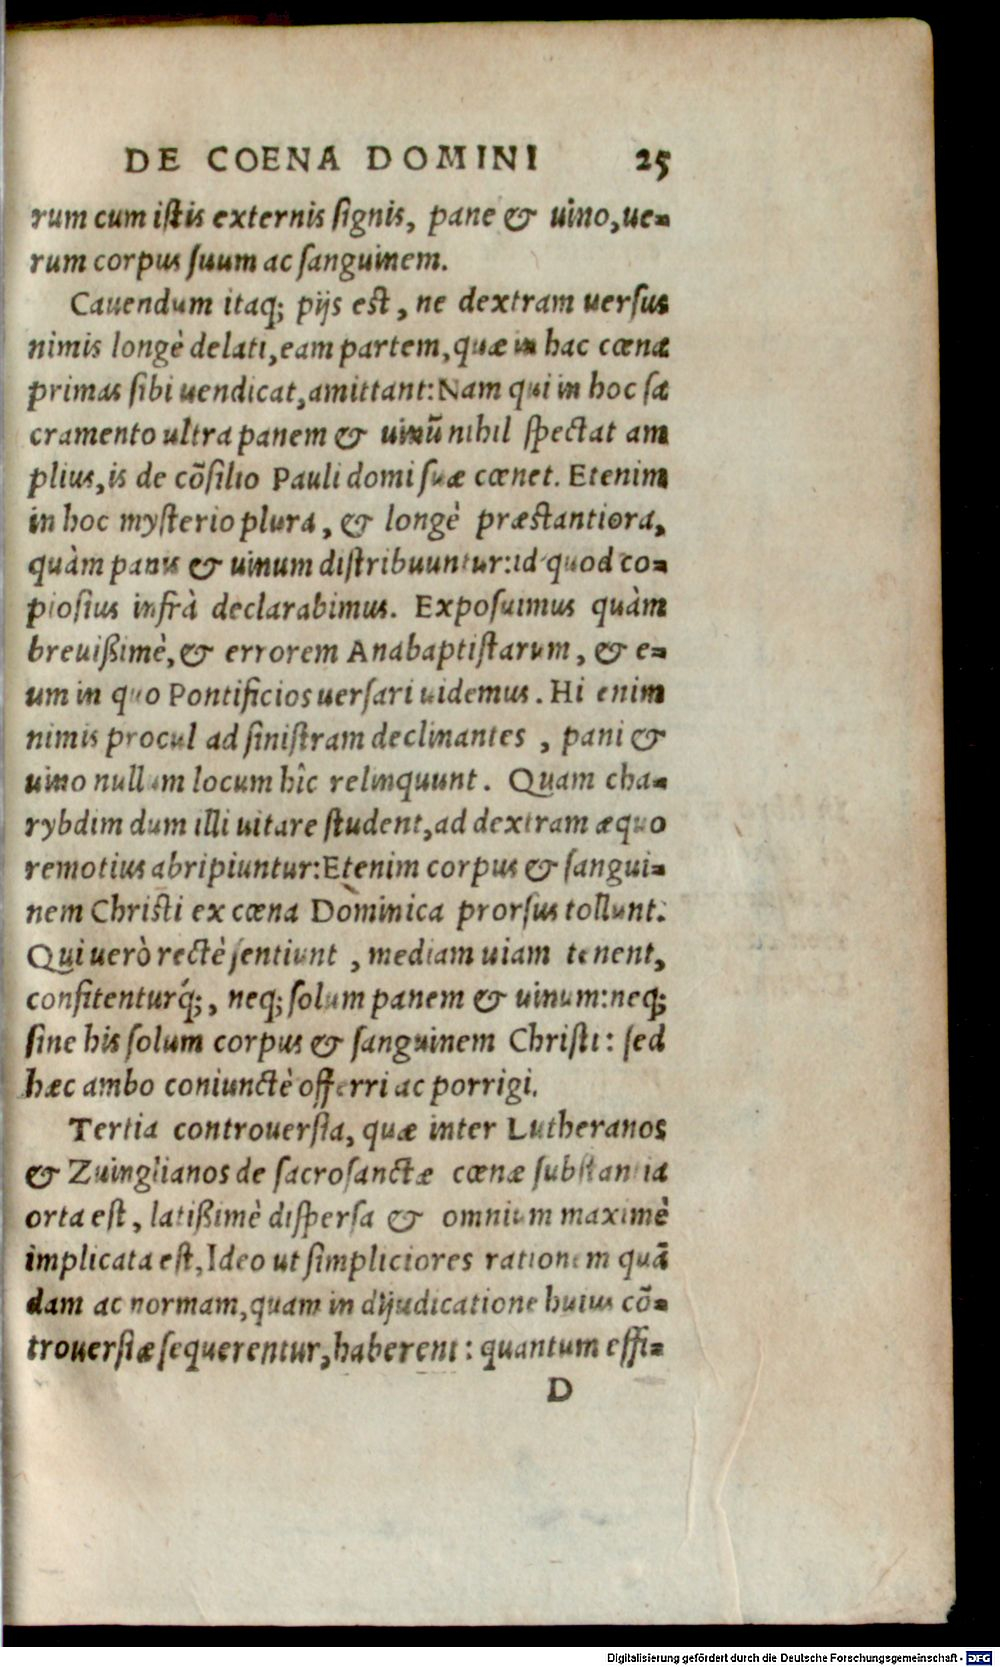 DE COENA DOMINI 25
rum cum istis externis signis, pane & uino, ue-
rum corpus suum ac sanguinem.
Cauendum itaq; pijs est, ne dextram uersus
nimis longè delati, eam partem, quæ in hac cœna
primas sibi uendicat, amittant: Nam qui in hoc sa
cramento ultra panem & uinũ nihil spectat am
plius, is de cõsilio Pauli domi suæ cœnet. Etenim
in hoc mysterio plura, & longè præstantiora,
quàm panis & uinum distribuuntur: id quod co-
piosius infrà declarabimus. Exposuimus quàm
breuißimè, & errorem Anabaptistarum, & e-
um in quo Pontificios uersari uidemus. Hi enim
nimis procul ad sinistram declinantes, pani &
uino nullum locum hîc relinquunt. Quam cha-
rybdim dum illi uitare student, ad dextram æquo
remotius abripiuntur: Etenim corpus & sangui-
nem Christi ex cœna Dominica prorsus tollunt.
Qui uerò rectè sentiunt, mediam uiam tenent,
confitenturq́;, neq; solum panem & uinum: neq;
sine his solum corpus & sanguinem Christi: sed
hæc ambo coniunctè offerri ac porrigi.
Tertia controuersia, quæ inter Lutheranos
& Zuinglianos de sacrosanctæ cœnæ substantia
orta est, latißimè dispersa & omnium maximè
implicata est, Ideo ut simpliciores rationem quã
dam ac normam, quam in dijudicatione huius cõ-
trouersiæ sequerentur, haberent: quantum effi-
D
Digitalisierung gefördert durch die Deutsche Forschungsgemeinschaft - DFG